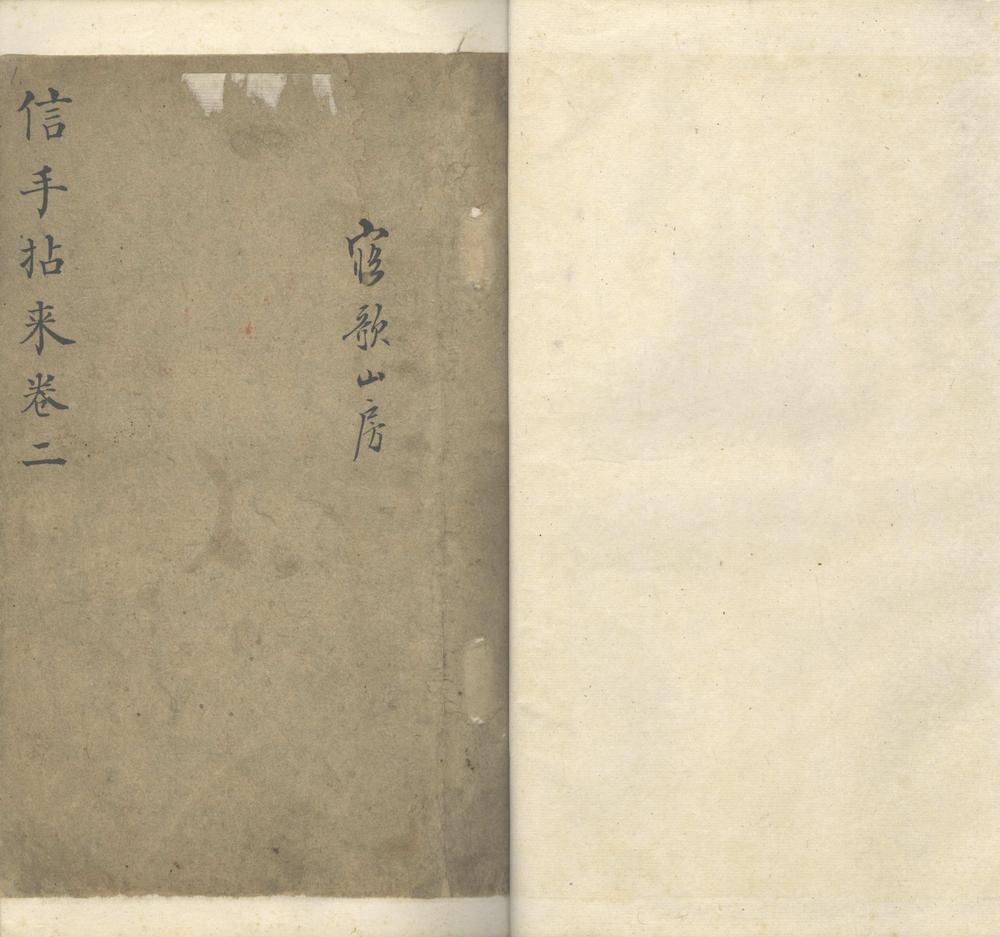 寤歌山房
信手拈来卷二